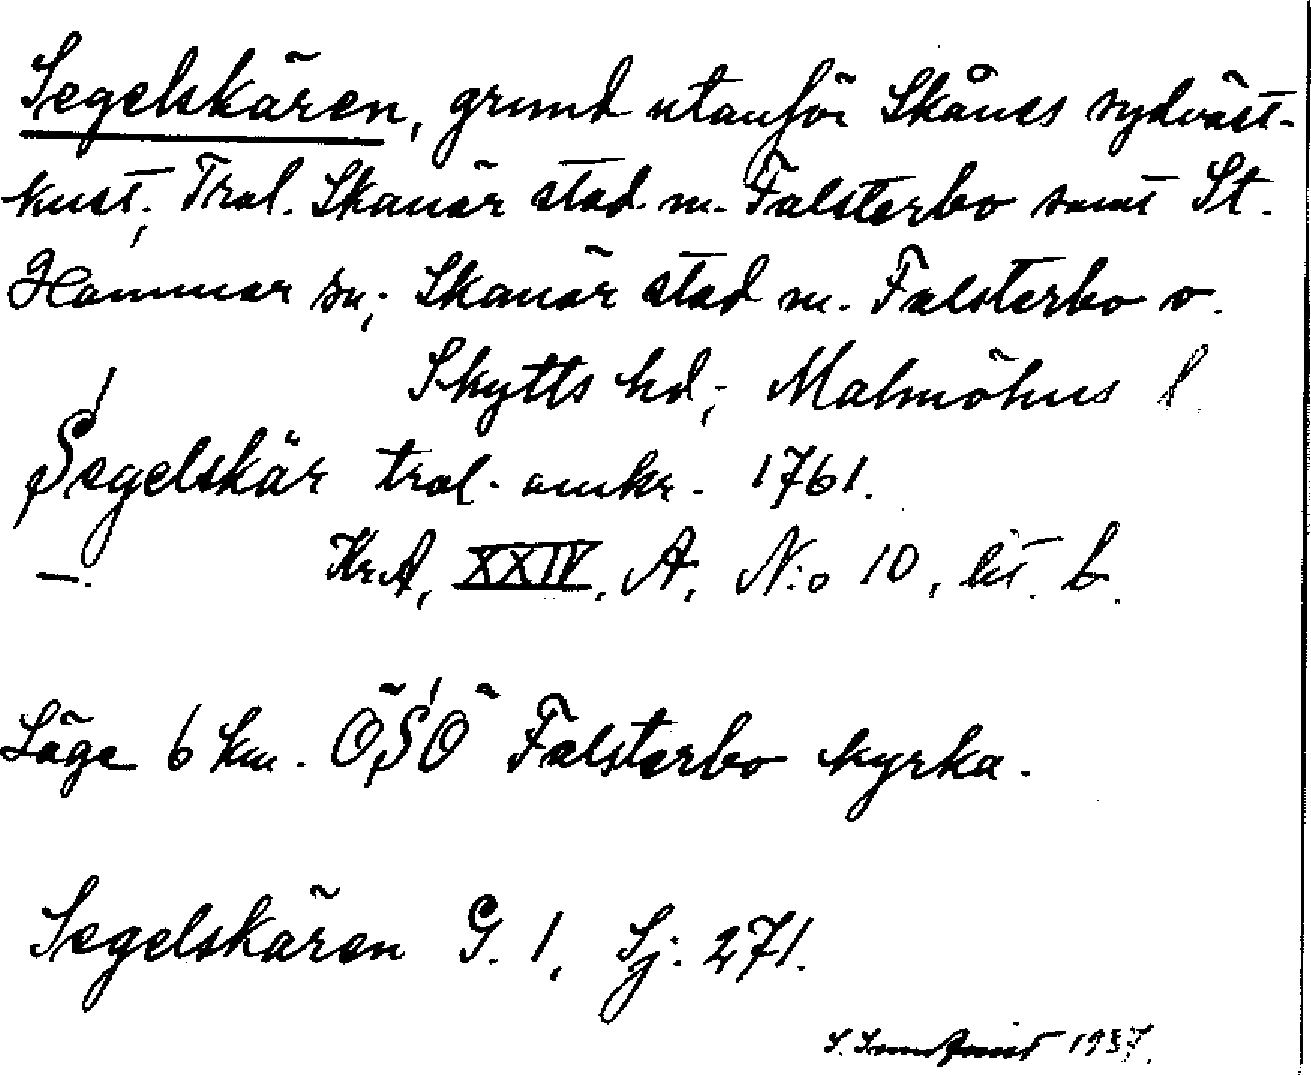 Segelskären, grund utanför Skånes sydväst-
kust; Trol. Skanör stad m. Falsterbo samt St.
Hammar sn; Skanör stad m. Falsterbo o.
Skytts hd; Malmöhus l.
Segelskär trol. omkr. 1761.
—. KrA, XXIV, A, N:o 10, lit. b.
Läge 6 km. ÖSÖ Falsterbo kyrka.
Segelskären G. 1, Sj. 271.
S. 1937.